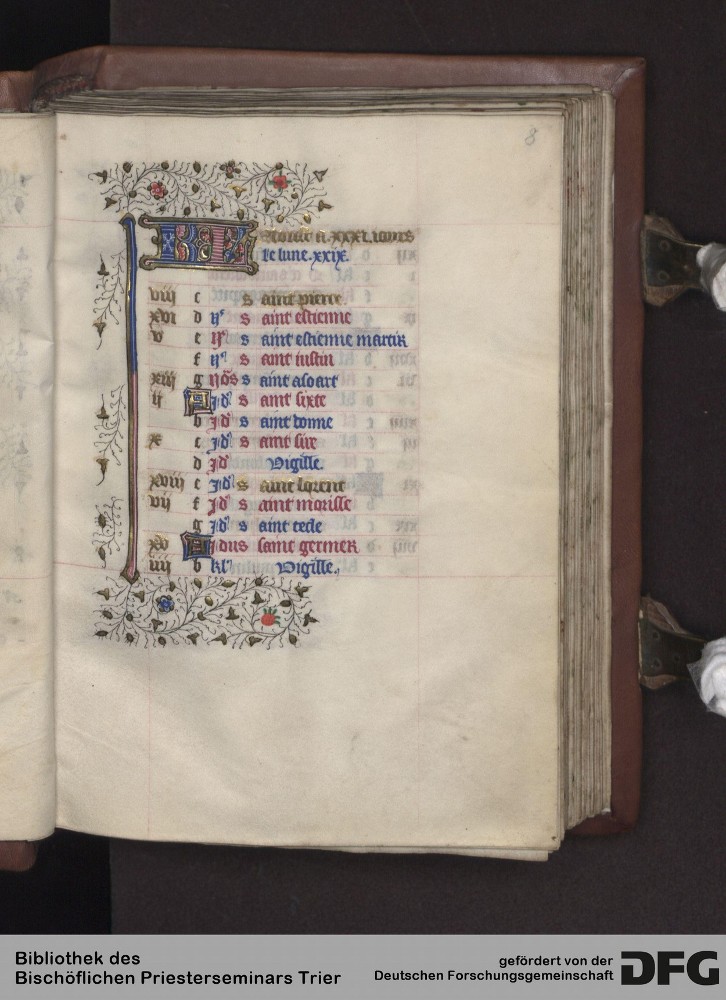 8
KL Aoust a .xxxi. iours
Le lune .xxix.
viii c saint pierre.
xvi d iiijᵉ saint estienne
v e iijᵉ saint estienne martir
f ijᵉ saint iustin
xiii g nōs saint
ii A id' saint sixte
b id' saint donne
x c id' saint
d id' Vigille.
xviii e id' saint lorent
vii f id' saint morisse
g id' saint tecle
xv A idus saint germer
iiii b kl' Vigille.
Bibliothek des
Bischöflichen Priesterseminars Trier
gefördert von der
Deutschen Forschungsgemeinschaft DFG